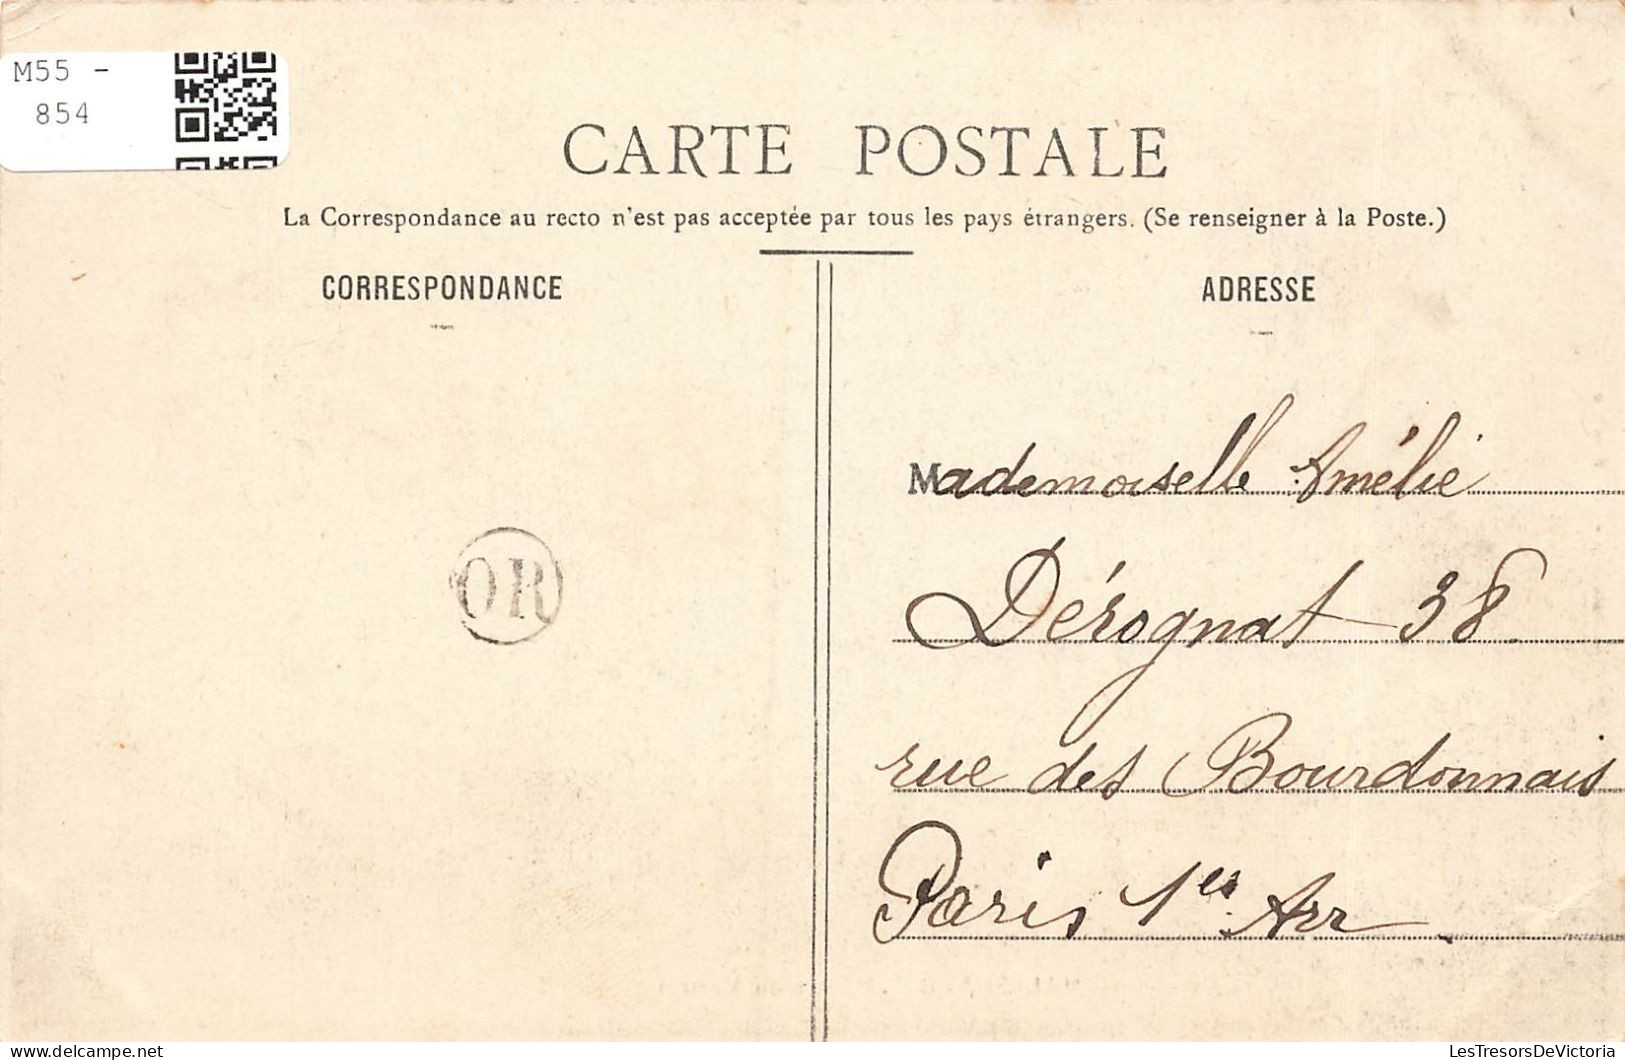 M55 -
854
CARTE POSTALE
La Correspondance au recto n'est pas acceptée par tous les pays étrangers. (Se renseigner à la Poste.)
CORRESPONDANCE
ADRESSE
Mademoiselle Amélie
Dérognat 38
rue des Bourdonnais
Paris 1er Arr
OR
delcampe.net
LesTresorsDeVictoria